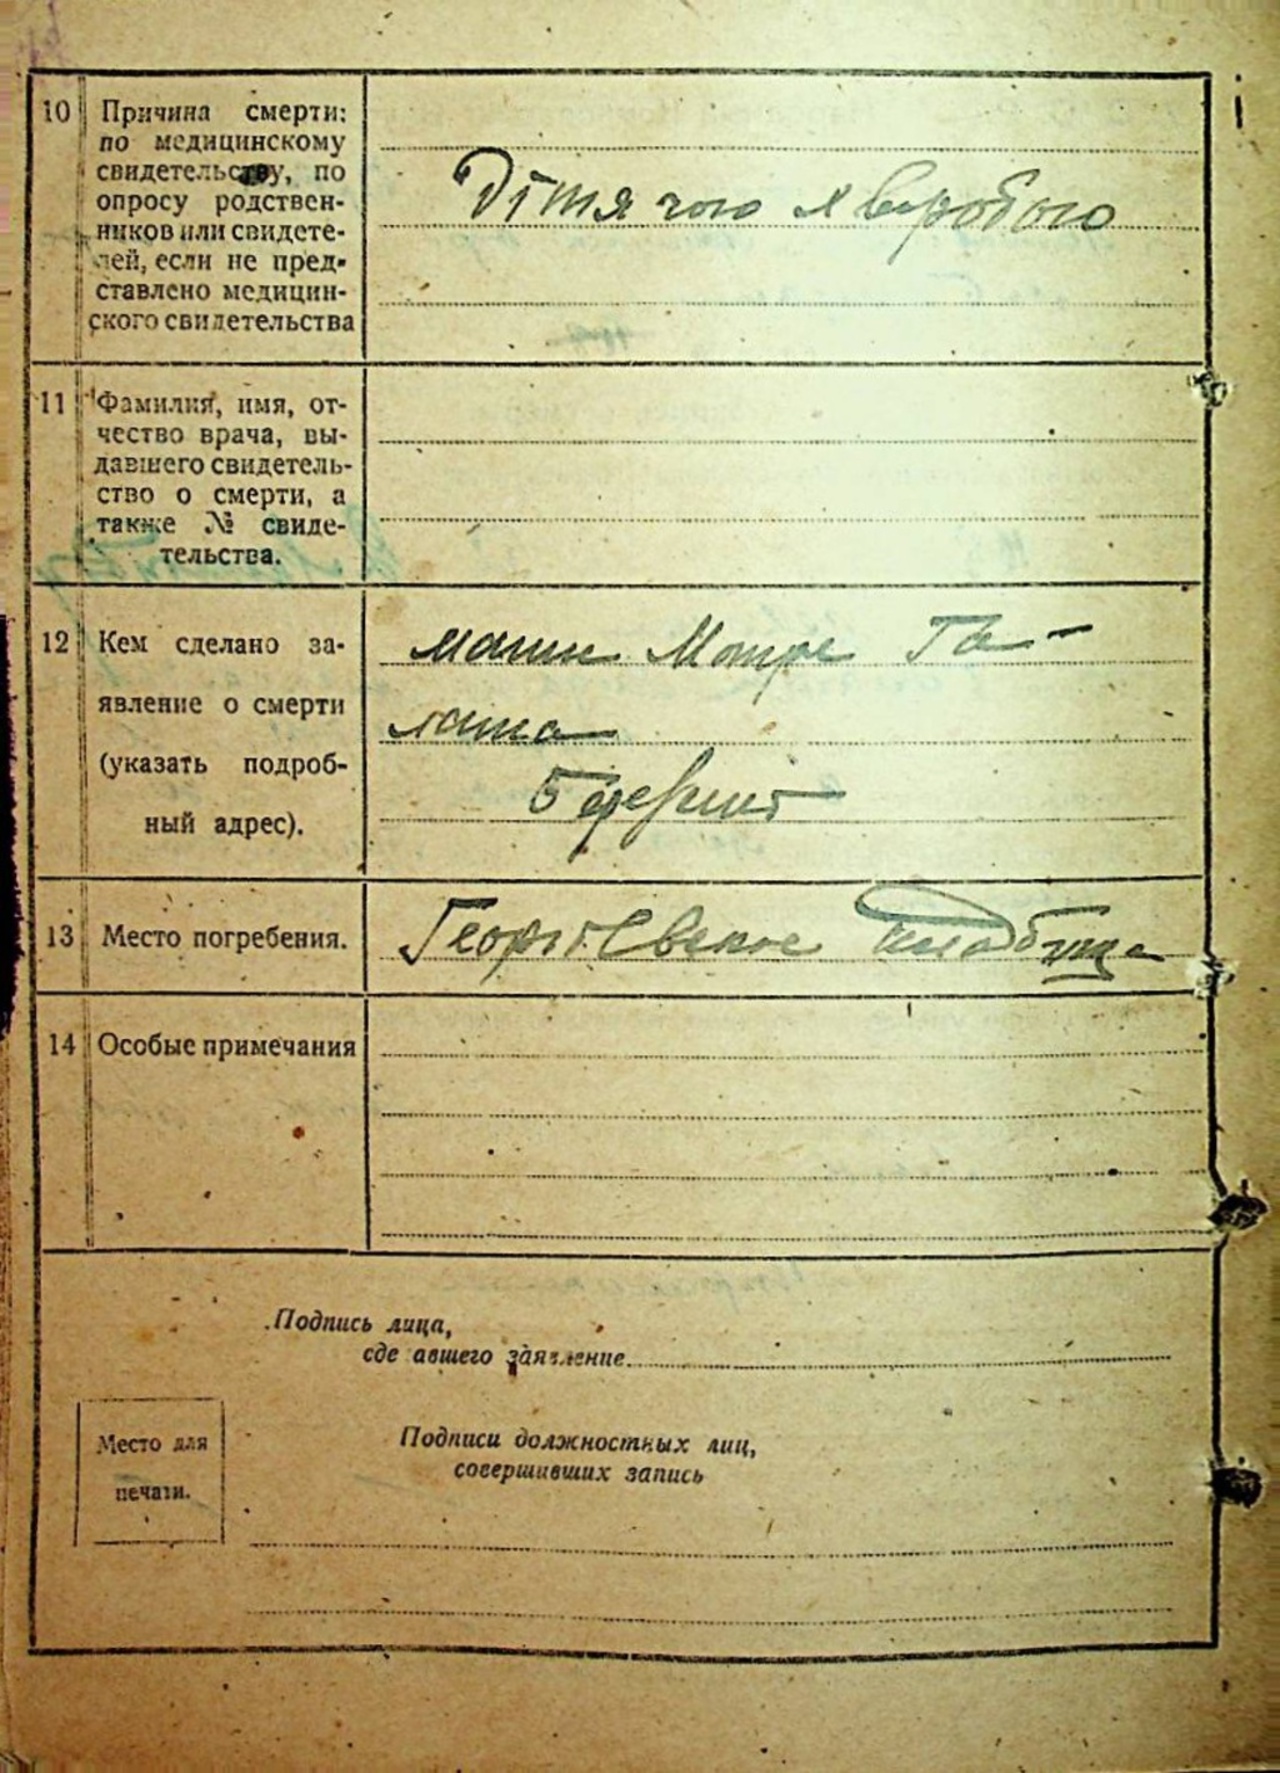 10 Причина смерти:
по медицинскому
свидетельству, по
опросу родствен-
ников или свидете-
лей, если не пред-
ставлено медицин-
ского свидетельства
Дітячого хворобого
11 Фамилия, имя, от-
чество врача, вы-
давшего свидетель-
ство о смерти, а
также № свиде-
тельства.
12 Кем сделано за-
явление о смерти
(указать подроб-
ный адрес).
мати Мотре Га-
лата
13 Место погребения.
Георгіевское кладбище
14 Особые примечания
Подпись лица,
сде авшего заявление.
Место для
печати.
Подписи должностных лиц,
совершивших запись